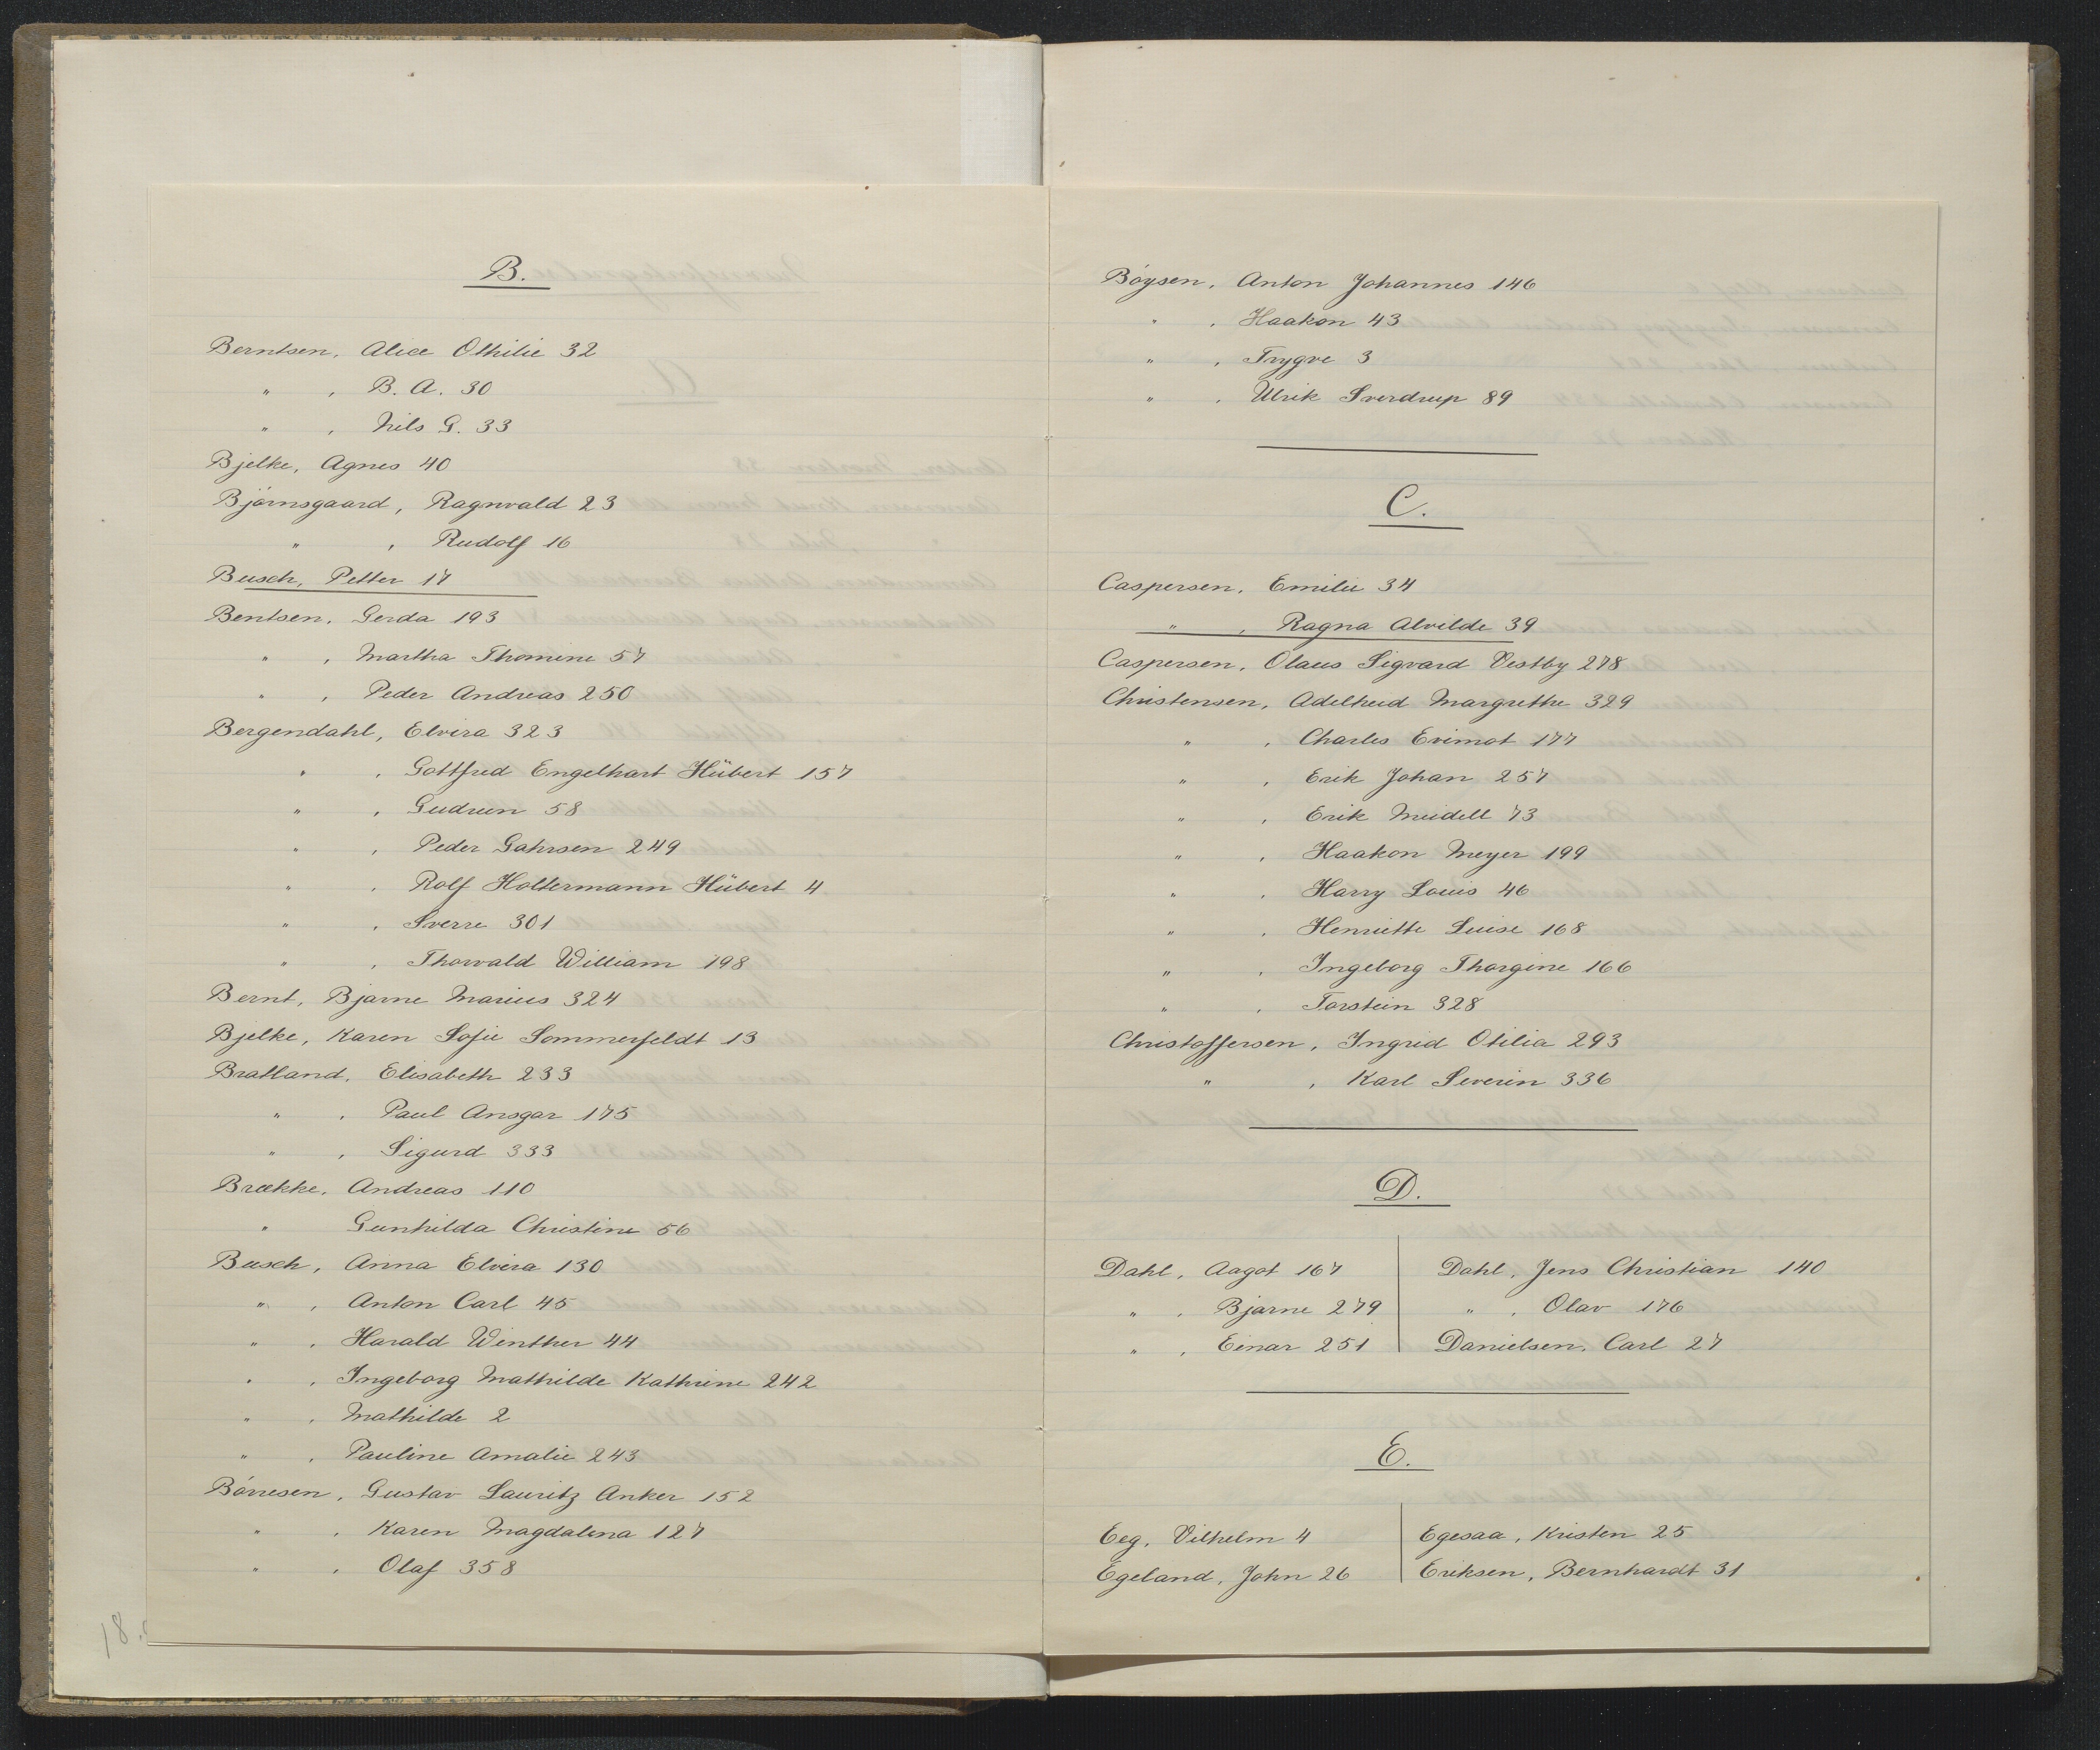 B.
Berntsen, Alice Othilie 32
" , B. A. 30
" , Nils G. 33
Bjelke, Agnes 40
Björnsgaard, Ragnvald 23
" , Rudolf 16
Busch, Petter 17
Bentsen, Gerda 193
" , Martha Thomine 57
" , Peder Andreas 250
Bergendahl, Elvira 323
" , Gottfred Engelhart Hübert 157
" , Gudrun 58
" , Peder Gahrsen 249
" , Rolf Holtermann Hübert 4
" , Sverre 301
" , Thorvald William 198
Bernt, Bjarne Marius 324
Bjelke, Karen Sofie Sommerfeldt 13
Bratland, Elisabeth 233
" , Paul Ansgar 175
" , Sigurd 333
Brække, Andreas 110
" Gunhilda Christine 56
Busch, Anna Elvira 130
" , Anton Carl 45
" , Harald Winther 44
" , Ingeborg Mathilde Kathrine 242
" , Mathilde 2
" , Pauline Amalie 243
Börresen, Gustav Lauritz Anker 152
" , Karen Magdalena 127
" , Olaf 358
18.
Böysen, Anton Johannes 146
" , Haakon 43
" , Trygve 3
" , Ulrik Sverdrup 89
C.
Caspersen, Emilie 34
" , Ragna Alvilde 39
Caspersen, Olaus Sigvard Vestby 278
Christensen, Adelheid Margrethe 329
" , Charles Evimot 177
" , Erik Johan 257
" , Erik Meidell 73
" , Haakon Meyer 199
" , Harry Louis 46
" , Henriette Luise 168
" , Ingeborg Thorgine 166
" , Torstein 328
Christoffersen, Ingrid Otilia 293
" , Karl Severin 336
D.
Dahl, Aagot 167
" , Bjarne 279
" , Einar 251
Dahl, Jens Christian 140
" , Olav 176
Danielsen, Carl 27
E.
Eeg, Vilhelm 4
Egeland, John 26
Egesaa, Kristen 25
Eriksen, Bernhardt 31